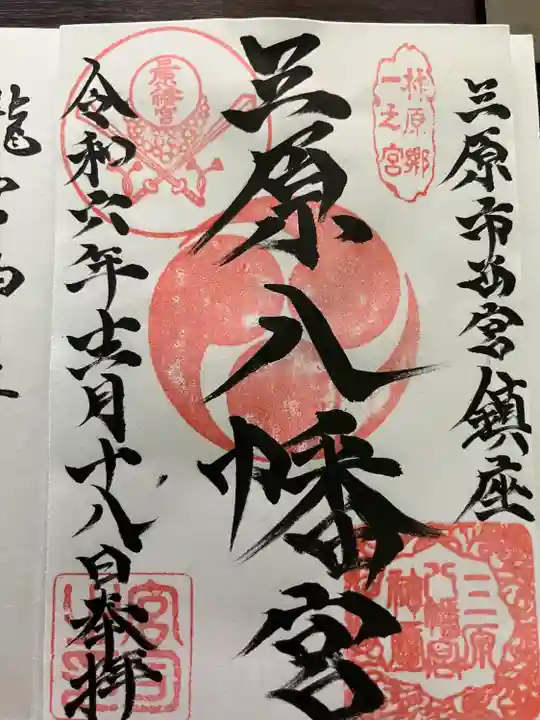 三原市西宮鎮座
柞原郷
一之宮
三原八幡宮
三原
八幡宮
神璽
三原八幡宮
令和六年十一月十八日奉拝
宮司